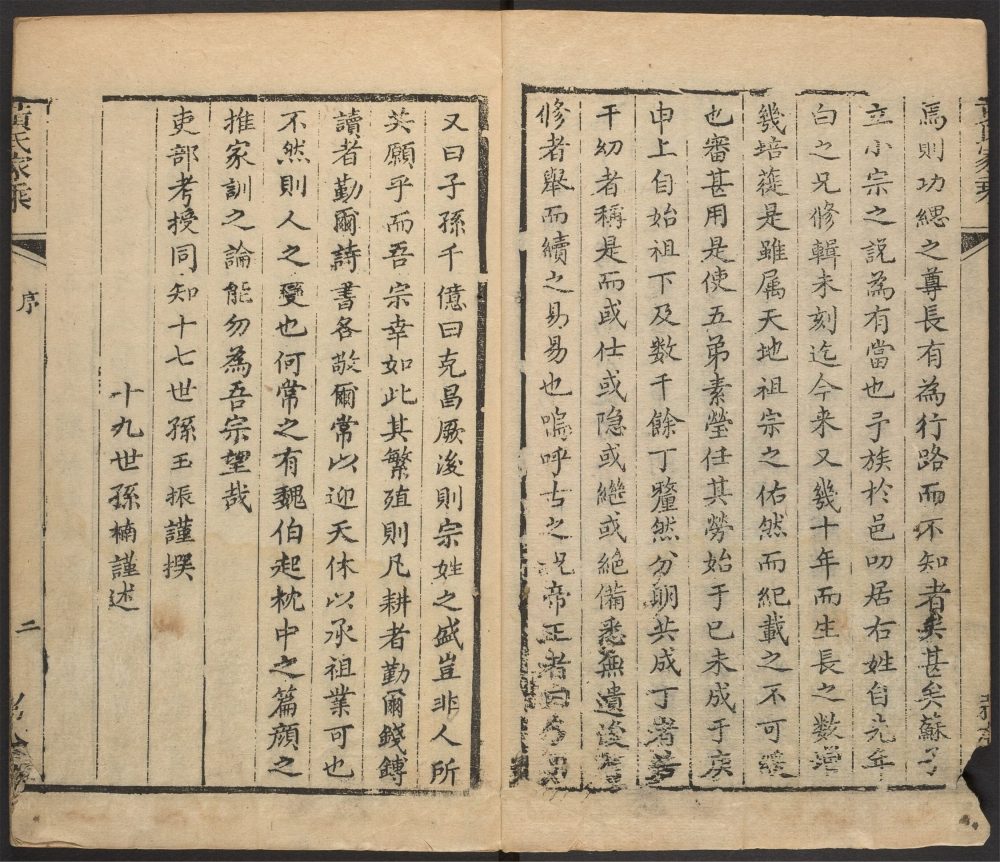 焉則功緦之尊長有為行路而不知者矣甚矣蘇子
立小宗之説為有當也予族於邑叨居右姓自元年
白之兄修輯未刻迄今来又幾十年而生長之数增
幾培蓰是雖属天地祖宗之佑然而紀載之不可緩
也審甚用是使五弟素瑩任其勞始于已未成于庚
申上自始祖下及数千餘丁釐然分朗共成丁者若
干幼者稱是而或仕或隐或繼或絶備悉無遺後
修者舉而續之易易也嗚呼古之祝帝王者曰多
又曰子孫千億曰克昌厥後則宗姓之盛豈非人所
共願乎而吾宗幸如此其繁殖則凡耕者勤爾錢鎛
讀者勤爾詩書各敬爾常以迎天休以承祖業可也
不然則人之愛也何常之有魏伯起枕中之篇顔之
推家訓之論能勿為吾宗望哉
吏部考授同知十七世孫玉振謹撰
十九世孫楠謹述
黄氏家乘
序
二